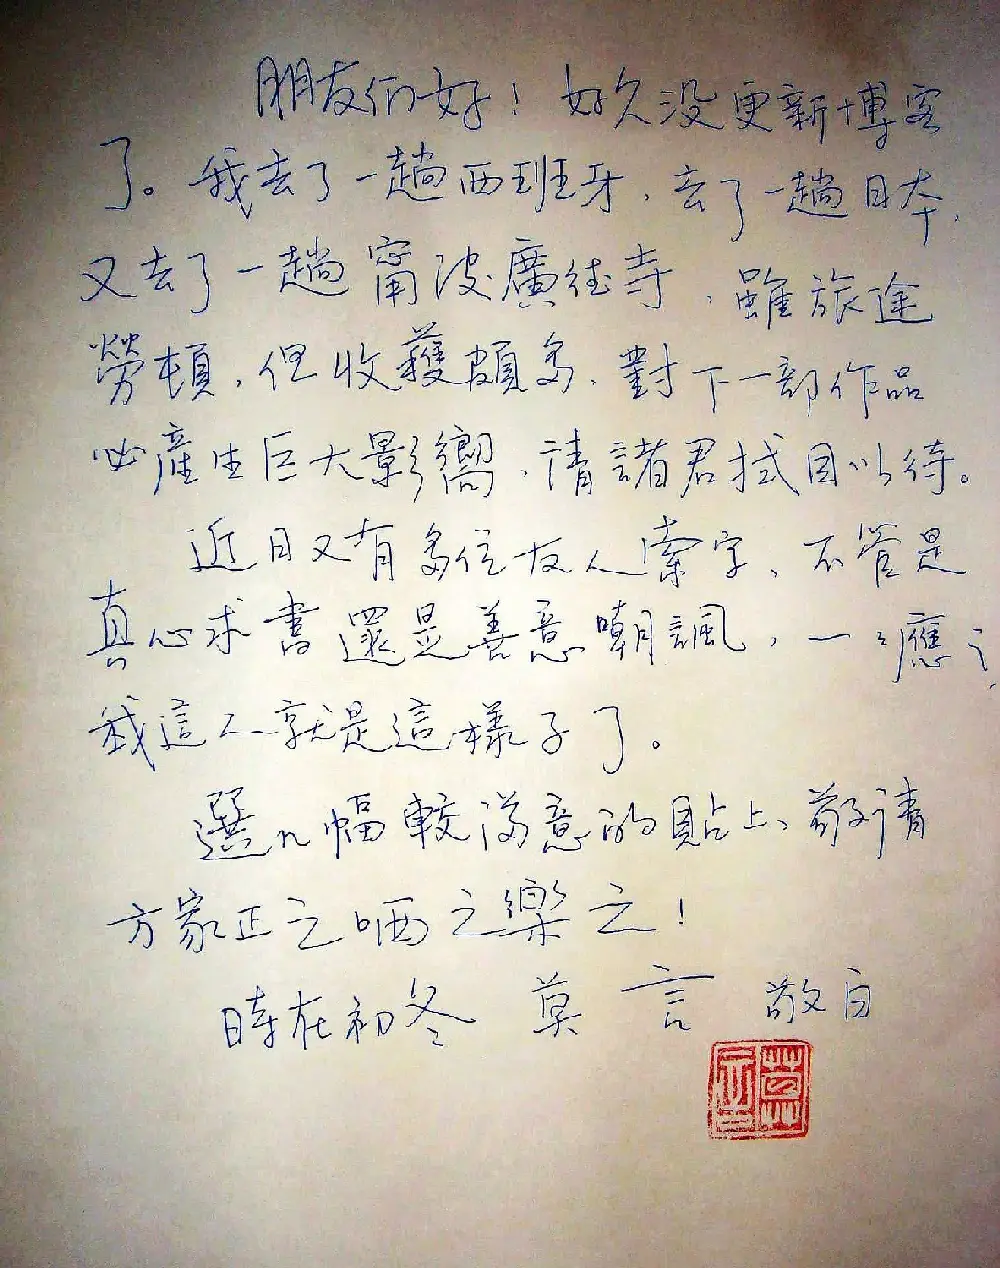 朋友们好！好久没更新博客
了。我去了一趟西班牙，去了一趟日本，
又去了一趟甯波廣德寺，雖旅途
勞頓，但收獲頗多，對下一部作品
必產生巨大影嚮，请諸君拭目以待。
近日又有多位友人索字，不管是
真心求書還是善意嘲諷，一々應之，
我這人就是這樣子了。
選几幅較滿意的貼上，敬请
方家正之哂之樂之！
時在初冬 莫言 敬白
莫言